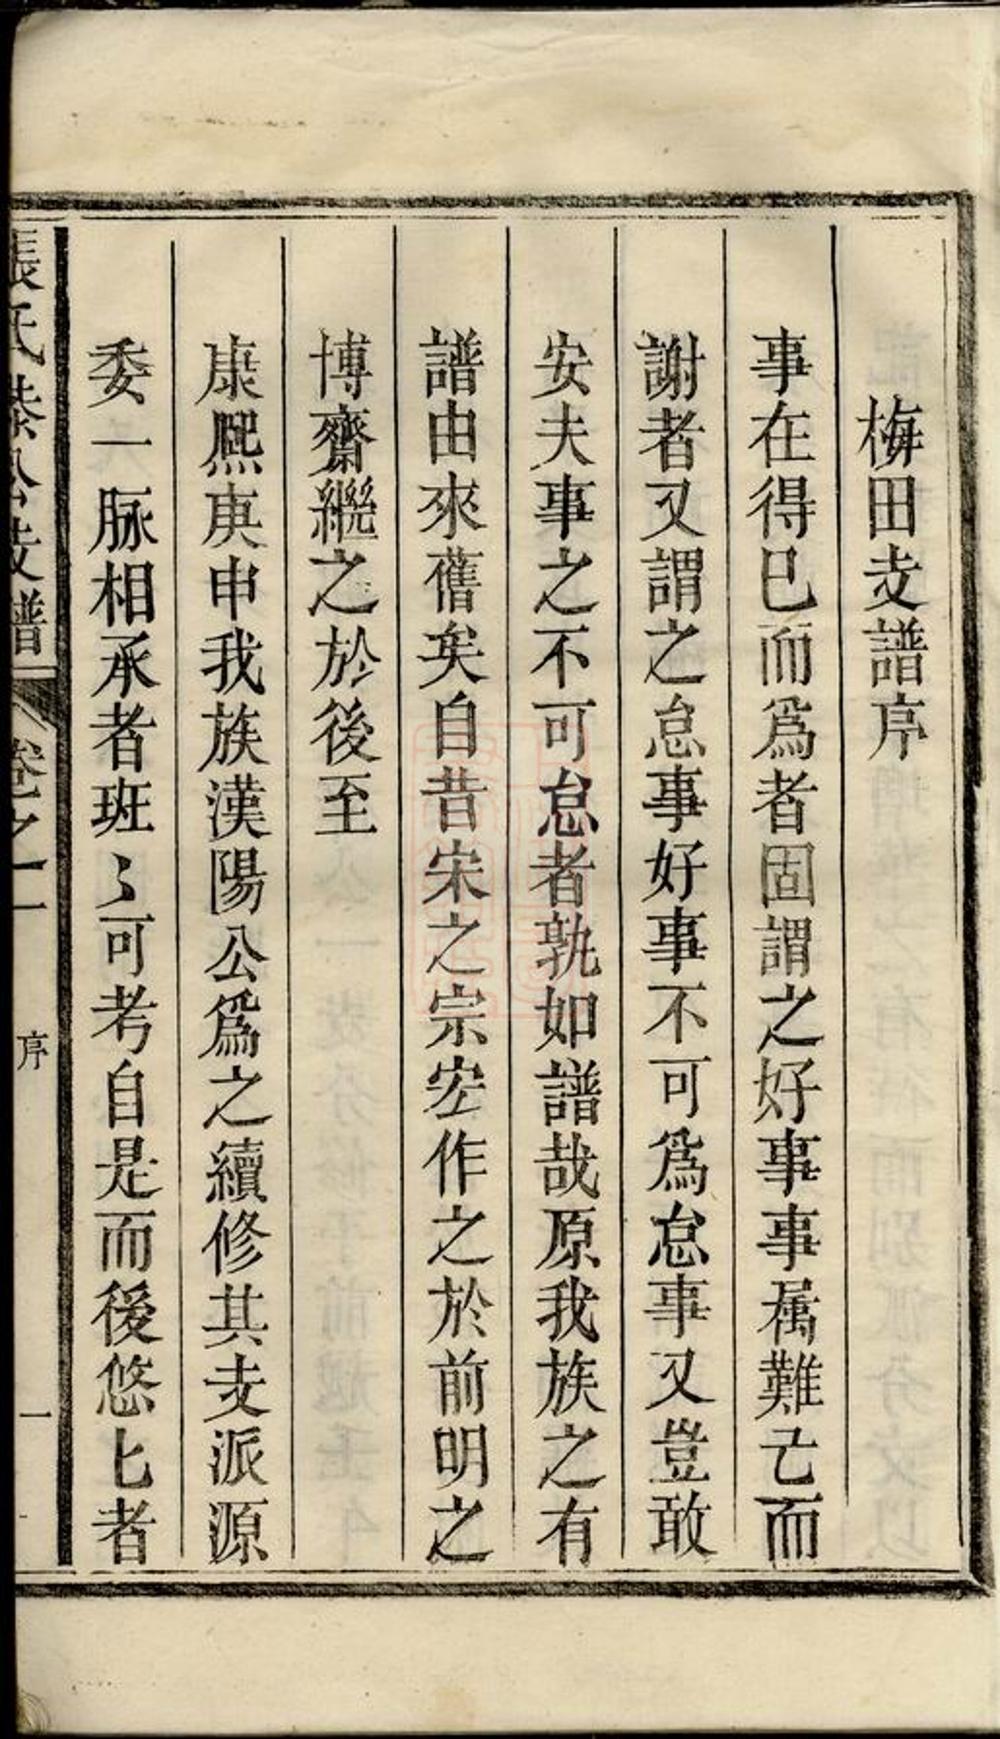 梅田支譜序
事在得已而爲者固謂之好事事屬難亡而
謝者又謂之怠事好事不可爲怠事又豈敢
安夫事之不可怠者孰如譜哉原我族之有
譜由來舊矣自昔宋之宗宏作之於前明之
博齋繼之於後至
康熙庚申我族漢陽公爲之續修其支派源
委一脉相承者班〻可考自是而後悠匕者
張氏恭公支譜 卷之一 序 一